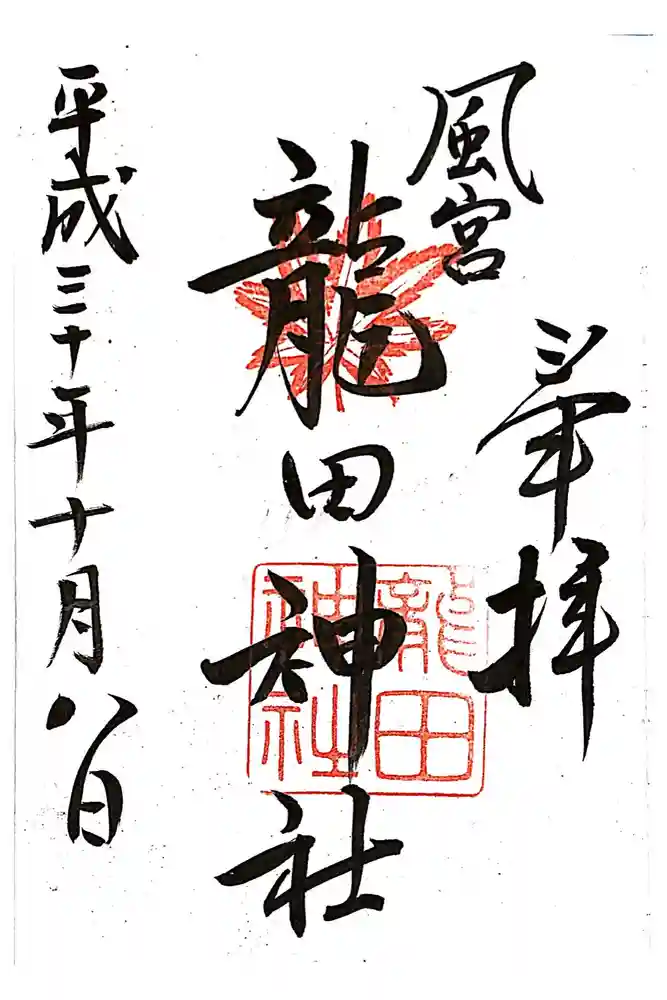 奉拝
風宮
龍田神社
龍田
神社
平成三十年十月八日